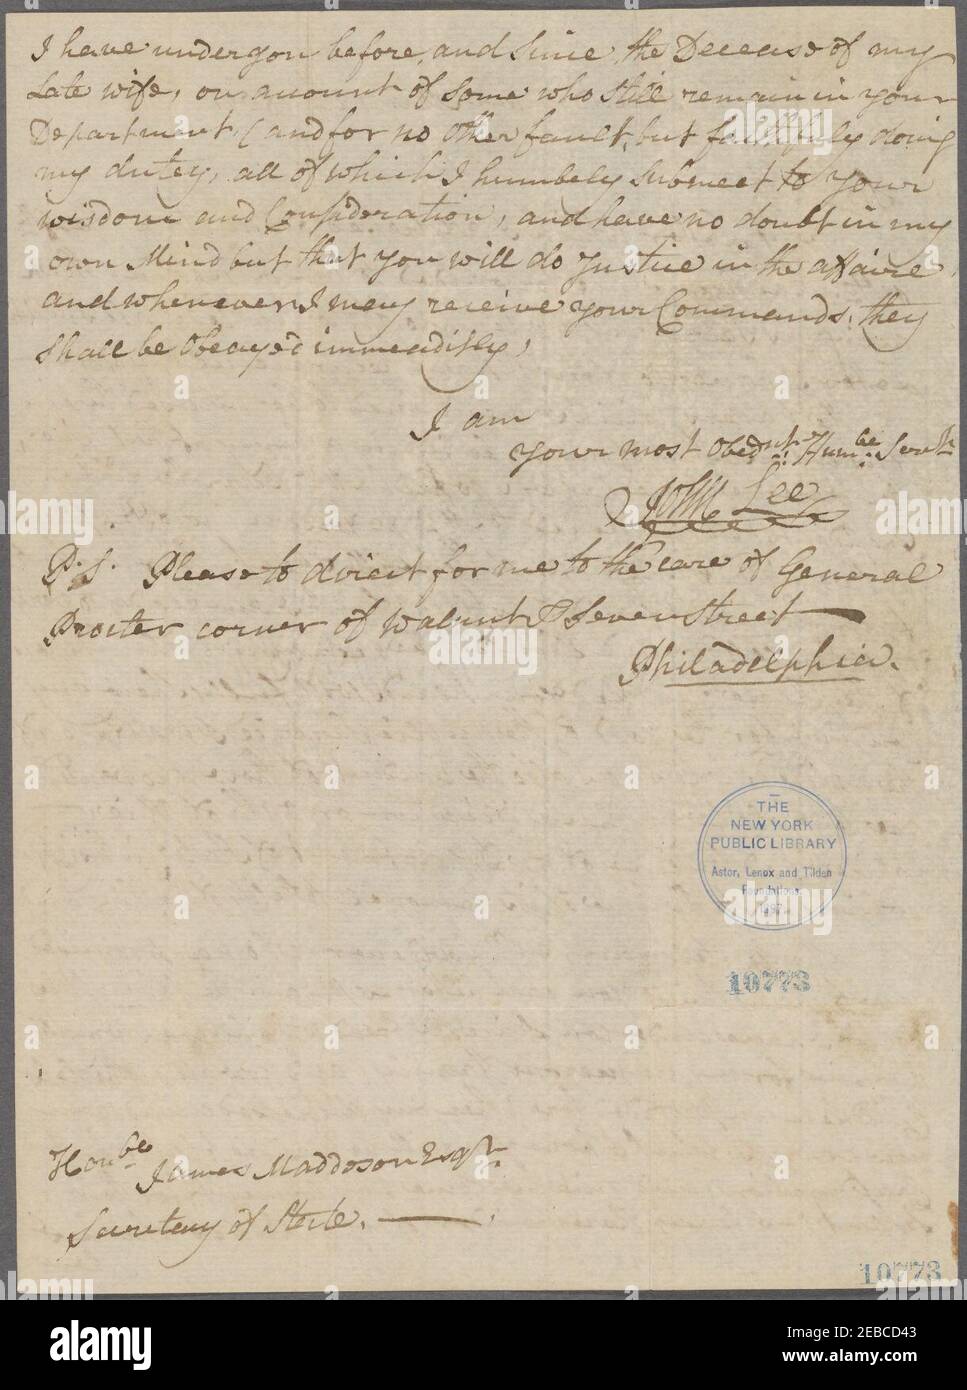 I have undergon before, and Since, the Decease of my
Late wife, on account of Some who Still remain in your
Department, (and for no Other fault, but faithfuly doing
my dutey, all of which I humbely Submeet to your
wisdom and Consideration, and have no doubt in my
own Mind but that you will do Justice in the affaire,
and whenever I mey receive your Commands, they
Shall be Obeay'd immeaditly,
I am
your most Obednt. Humbe. Servt.
John Lee
P.S. Please to direct for me to the care of General
Procter corner of walnut & Seven Street
Philadelphia.
THE
NEW YORK
PUBLIC LIBRARY
Astor, Lenox and Tilden
Foundations.
1897
10773
Honbe. James Maddoson Esqr.
Secretary of State.
10773
alamy
Image ID: 2EBCD43
www.alamy.com